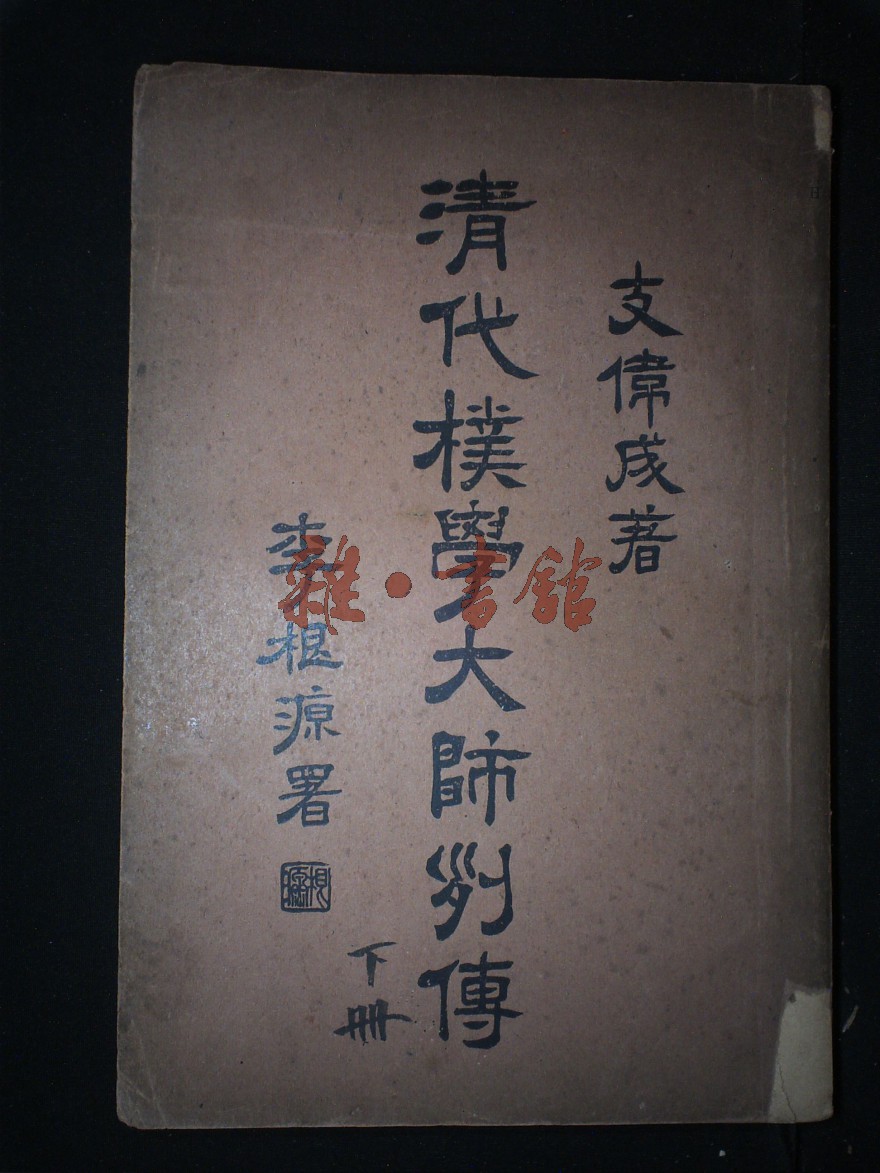 支偉成著
清代樸學大師列傳
下冊
李根源署
根源
雜·書館